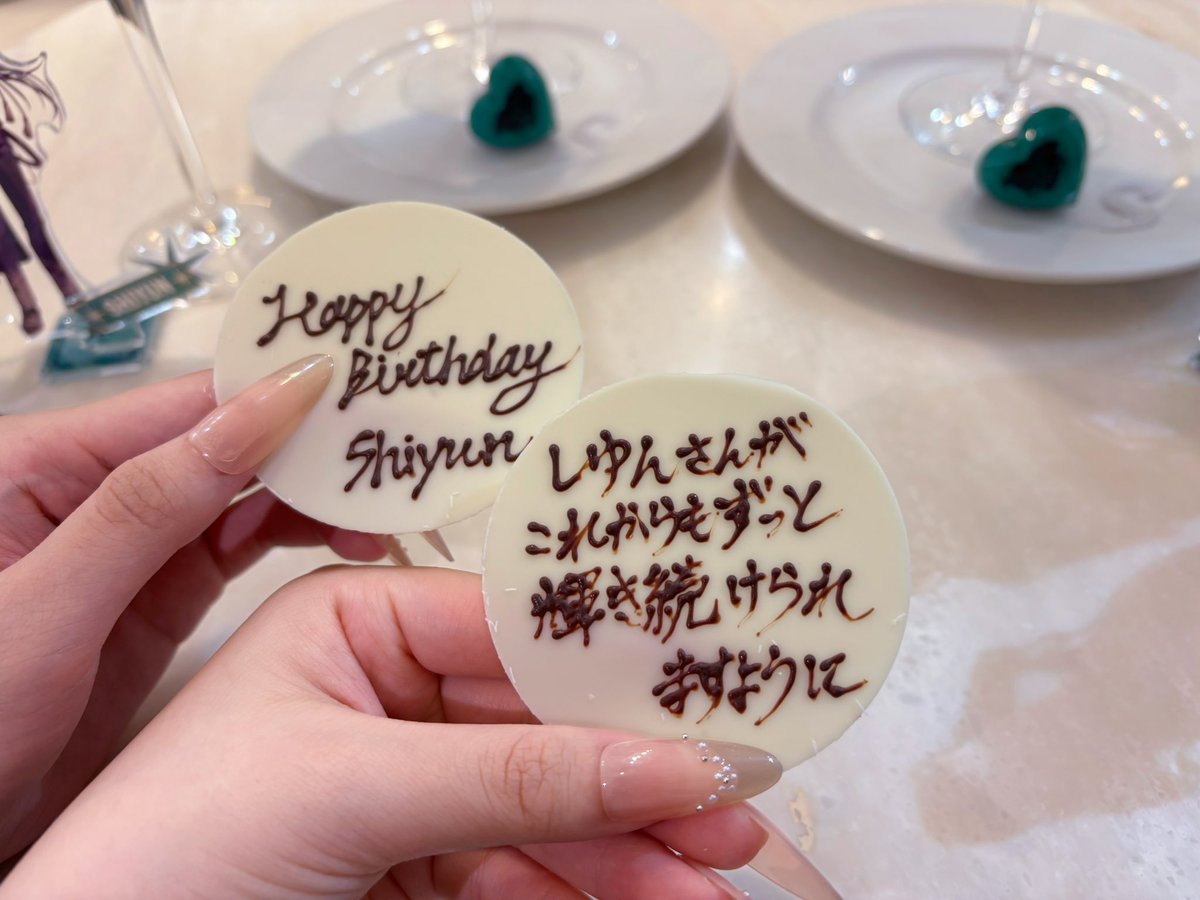 Happy
Birthday
Shiyun
しゆんさんが
これからもずっと
輝き続けられ
ますように
SHIYUN